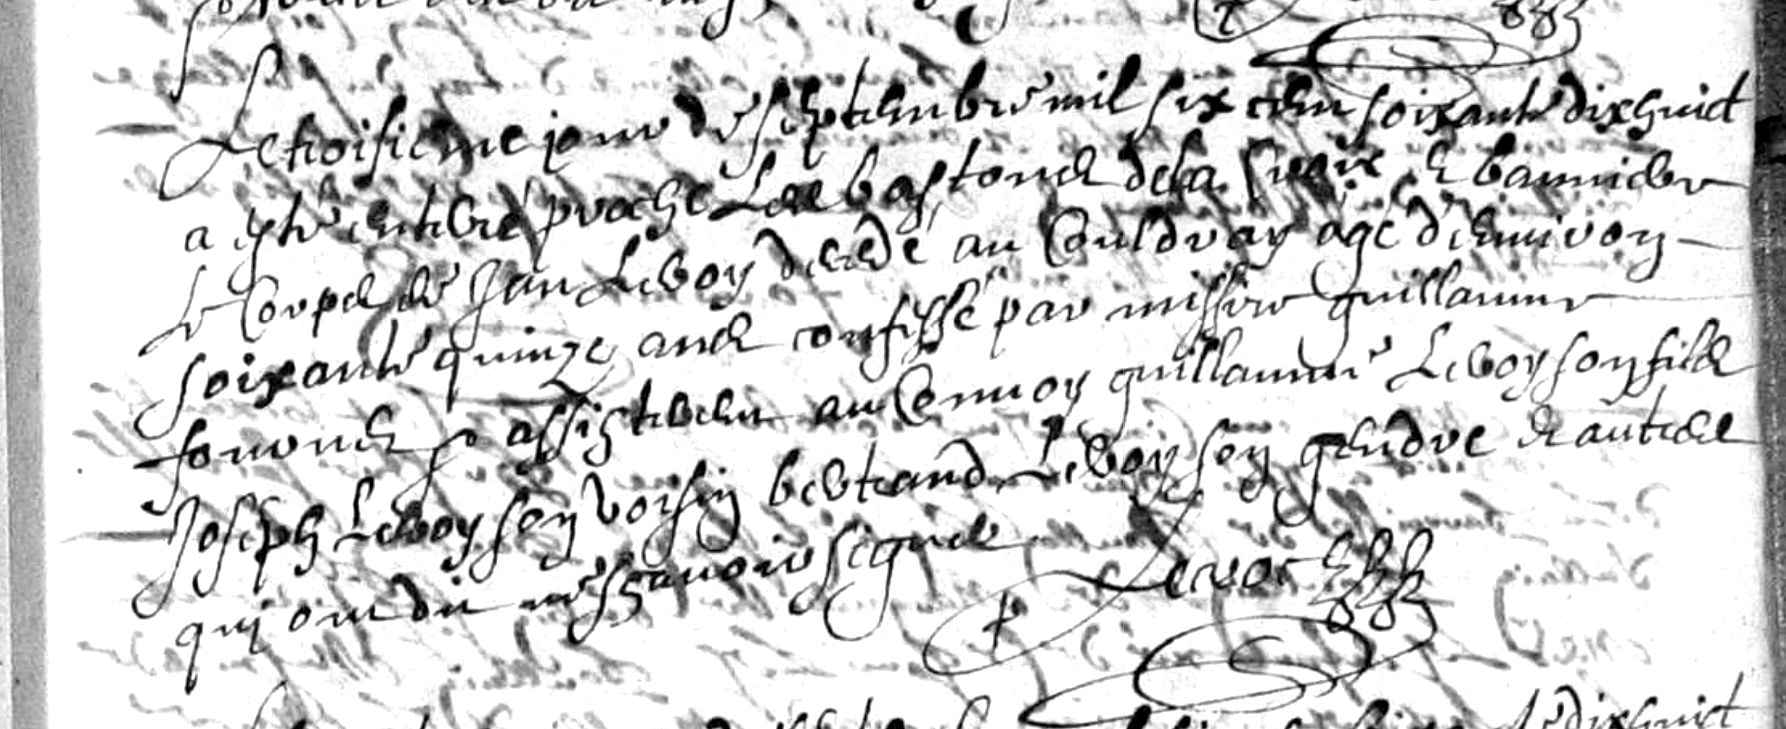 Le troisieme jour de septembre mil six cens soixante dixhuict
a este enterré proche les bastons de la croix & banniere
le corps de Jan Leroy decedé au Couldray agé d'environ
soixante quinze ans confessé par missire guillaume
assisterent au Convoy guillaume Leroy son fils
Joseph Leroy son voisin bertrand Leroy son gendre & autres
qui ont dit ne sçavoir signer